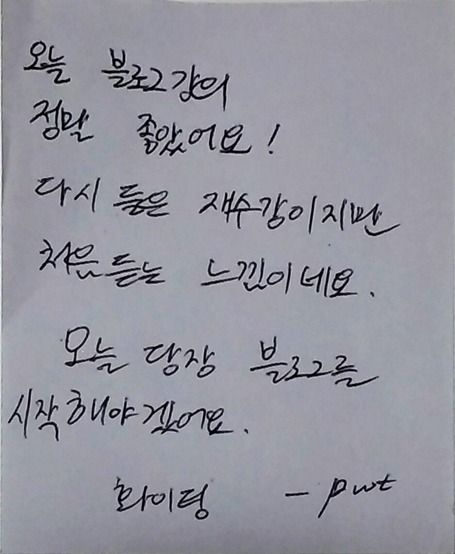 오늘 블로그강의
정말 좋았어요!
다시 들은 재수강이지만
처음 듣는 느낌이네요.
오늘 당장 블로그를
시작해야겠어요.
화이팅 - pwt